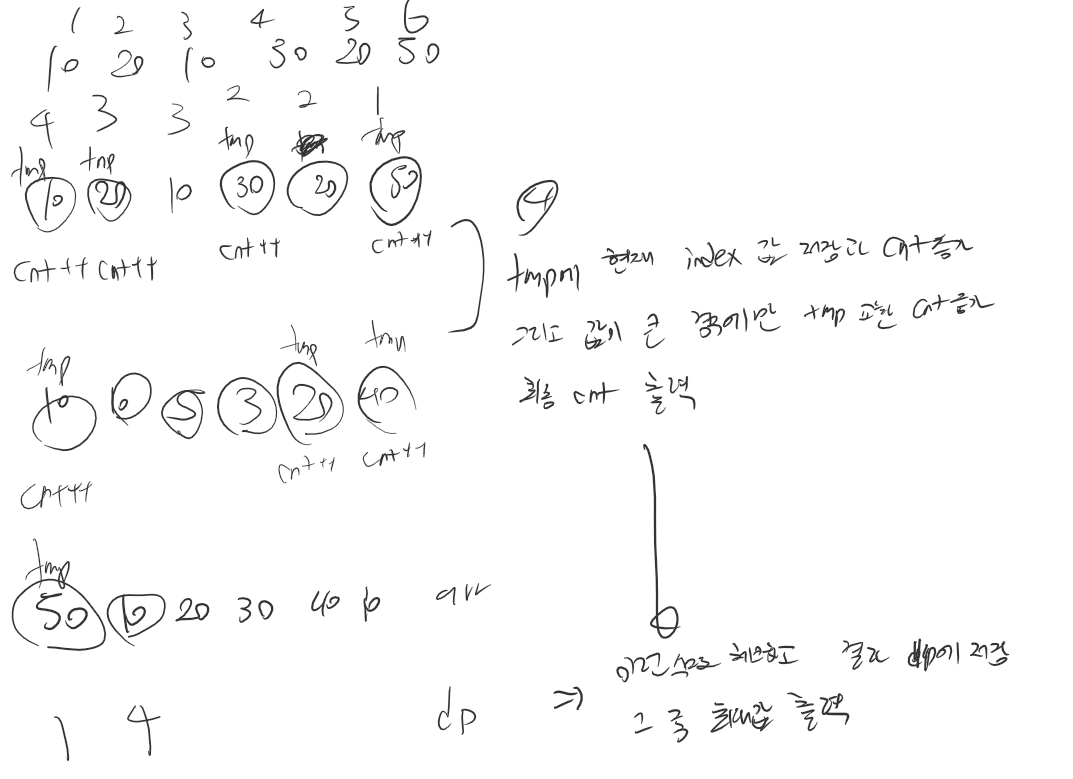 1 2 3 4 5 6
10 20 10 30 20 50
4 3 3 2 2 1
tmp tmp tmp tmp
10 20 10 30 20 50
cnt++ cnt++ cnt++ cnt++
4
tmp에 현재 index 값 저장과 cnt 증가
그리고 값이 큰 경우에만 tmp 교환 cnt 증가
최종 cnt 출력
tmp tmp
10 6 5 3 20 40
cnt++ cnt++ cnt++
tmp
50 10 20 30 40 10 arr
이런식으로 해보고 결과 dp에 저장
1 4 dp ⇒ 그 중 최대값 출력